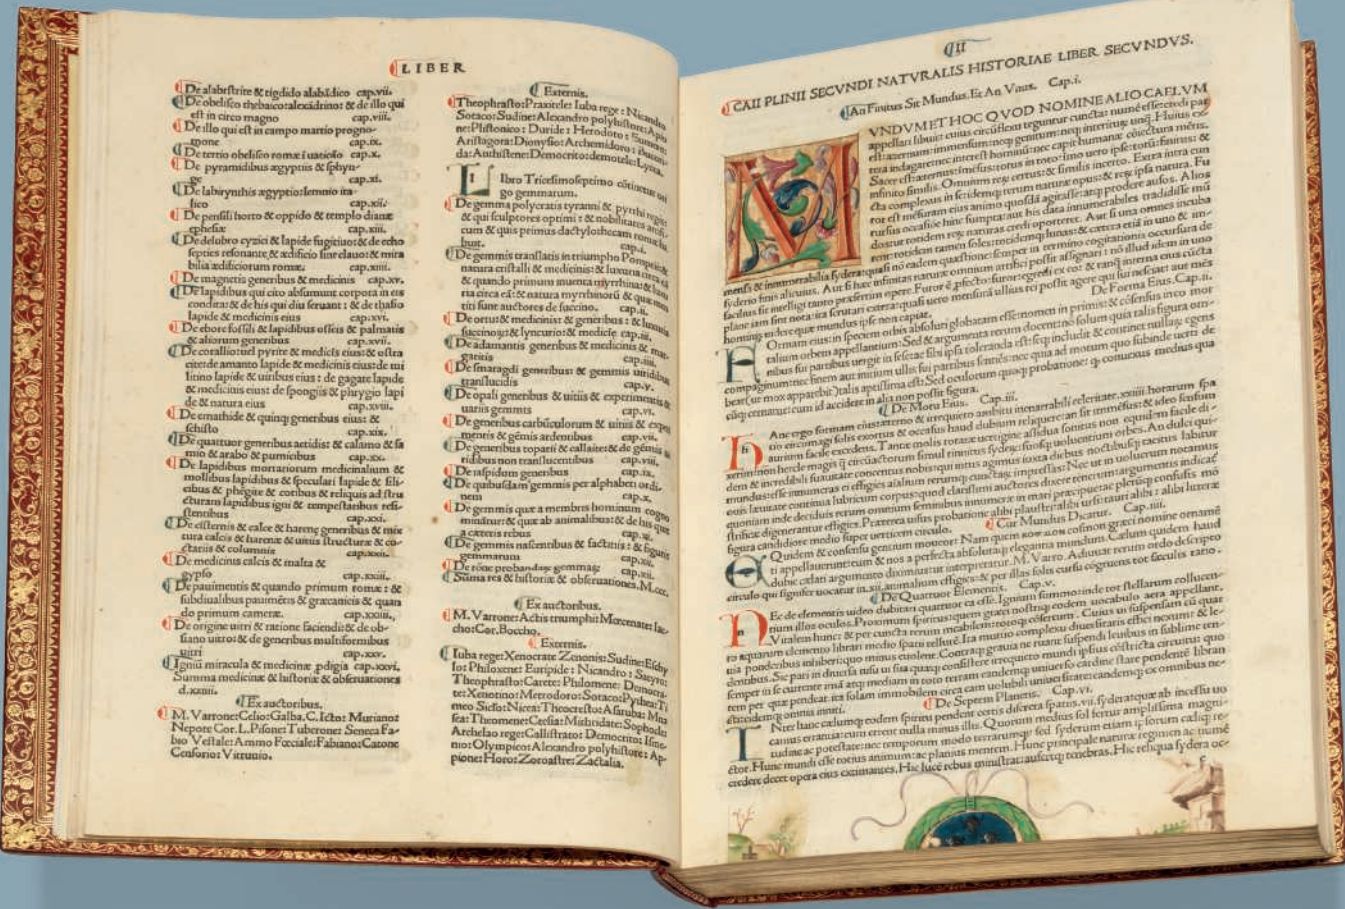 LIBER
De alabastrite & tigdido alabādico cap.vii.
De obelisco thebaico:alexādrino: & de illo qui
est in circo magno cap.viii.
De illo qui est in campo martio progno-
mone cap.ix.
De tertio obelisco romæ ī uaticāo cap.x.
De pyramidibus ægyptiis & sphyn-
ge cap.xi.
De labyrinthis ægyptio:lemnio ita-
lico cap.xii.
De pensili horto & oppido & templo dianæ
ephesiæ cap.xiii.
De delubro cyzici & lapide fugitiuo: & de echo
septies resonante & ædificio sine clauo: & mira
bilia ædificiorum romæ. cap.xiiii.
De magnetis generibus & medicinis cap.xv.
De lapidibus qui cito absumunt corpora in eis
condita: & de his qui diu seruant: & de thasio
lapide & medicinis eius cap.xvi.
De ebore fossili & lapidibus osseis & palmatis
& aliorum generibus cap.xvii.
De corallio:uel pyrite & medicis eius: & ostra
cite:de amanto lapide & medicinis eius:de mi
litino lapide & uiribus eius: de gagate lapide
& medicinis eius: de spongiis & phrygio lapi
de & natura eius cap.xviii.
De emathide & quinq; generibus eius: &
schisto cap.xix.
De quattuor generibus aetidis: & calamo & sa
mio & arabo & pumicibus cap.xx.
De lapidibus mortariorum medicinalium &
mollibus lapidibus & speculari lapide & sili-
cibus & phēgite & cotibus & reliquis ad stru
cturam lapidibus igni & tempestatibus resi-
stentibus cap.xxi.
De cisternis & calce & harenę generibus & mix
tura calcis & harenæ & uitiis structuræ & co-
ctariis & columnis cap.xxii.
De medicinis calcis & malta &
gypso cap.xxiii.
De pauimentis & quando primum romæ: &
subdiualibus pauimētis & græcanicis & quan
do primum cameræ. cap.xxiiii.
De origine uitri & ratione faciendi: & de ob-
siano uitro: & de generibus multiformibus
uitri cap.xxv.
Igniū miracula & medicinæ ꝓdigia cap.xxvi.
Summa medicinæ & historiæ & obseruationes
d.xxiiii.
Ex auctoribus.
M.Varrone:Celio:Galba.C.Icto: Muriano:
Nepote Cor.L.Pisone: Tuberone: Seneca Fa-
bio Vestale:Ammo Fœciale:Fabiano:Catone
Censorio: Vitruuio.
Externis.
Theophrasto:Praxitele: Iuba rege: Nicandro
Sotaco:Sudine:Alexandro polyhistore:Apio
ne:Plistonico: Duride: Herodoto:
Aristagora: Dionysio: Archemidoro:
da:Anthistene: Democrito:demotele: Lycea.
LIbro Tricesimoseptimo cōtinetur ori
go gemmarum.
De gemma polycratis tyranni & pyrrhi regis:
& qui sculptores optimi: & nobilitates artifi-
cum & quis primus dactylothecam romæ ha
buit. cap.i.
De gemmis translatis in triumpho Pompeii: &
natura cristalli & medicinis: & luxuria circa ea
& quando primum inuenta myrrhina: & luxu
ria circa eā: & natura myrrhinorū & quæ men
titi sunt auctores de succino. cap.ii.
De ortu: & medicinis: & generibus: & luxuria
succinoꝝ: & lyncurio: & medicis. cap.iii.
De adamantis generibus & medicinis & mar
garitis cap.iiii.
De smaragdi generibus: & gemmis uiridibus
translucidis cap.v.
De opali generibus & uitiis & experimentis &
uariis gemmis cap.vi.
De generibus carbūculorum & uitiis & experi
mentis & gēmis ardentibus cap.vii.
De generibus topazii & callaite: & de gēmis ui
ridibus non translucentibus cap.viii.
De iaspidum generibus cap.ix.
De quibusdam gemmis per alphabeti ordi-
nem cap.x.
De gemmis quæ a membris hominum cogno
minātur: & quæ ab animalibus: & de his quæ
a cæteris rebus cap.xi.
De gemmis nascentibus & factitiis: & figuris
gemmarum cap.xii.
De rōne probandaꝝ gemmaꝝ cap.xii.
Summa res & historiæ & obseruationes.M.ccc.
Ex auctoribus.
M. Varrone:Actis triumphi: Mœcenate: Iac-
cho:Cor.Boccho.
Externis.
Iuba rege:Xenocrate Zenonis:Sudine:Eschy
lo: Philoxene: Euripide: Nicandro: Satyro:
Theophrasto:Carete: Philomene: Democra-
te: Xenotino: Metrodoro: Sotaco:Pythea: Ti
meo Siculo: Nicea: Theocresto: Asaruba: Mna
sea: Theomene: Ctesia: Mithridate: Sophocle:
Archelao rege: Callistrato: Democrito: Isme-
no: Olympico: Alexandro polyhistore: Ap-
pione:Horo: Zoroastre: Zactalia.
II
CAII PLINII SECVNDI NATVRALIS HISTORIAE LIBER SECVNDVS.
An Finitus Sit Mundus. Et An Vnus. Cap.i.
MVNDVM ET HOC QVOD NOMINE ALIO CAELVM
appellari libuit: cuius circūflexu teguntur cuncta: numē esse credi par
est: æternum: immensum: neq; genitum: neq; interiturū unq̄. Huius ex
tera indagare: nec interest hominū: nec capit humanæ coiectura mētis.
Sacer est: æternus: īmēsus: totus in toto: imo uero ipse totū: finitus: &
infinito similis. Omnium reꝝ certus: & similis incerto. Extra intra cun
cta complexus in se: idemq; rerum naturæ opus: & reꝝ ipsa natura. Fu
ror est mēsuram eius animo quosdā agitasse: atq; prodere ausos. Alios
rursus occasiōe hinc sumpta: aut his data innumerabiles tradidisse mū
dos: ut totidem reꝝ naturas credi oporteret. Aut si una omnes incuba
ret: totidem tamen soles: totidemq; lunas: & cætera etiā in uno & im-
mensa & innumerabilia sydera: quasi nō eadem quæstione semper in termino cogitationis occursura de
syderio finis alicuius. Aut si hæc infinitas naturæ omnium artifici possit assignari: nō illud idem in uno
facilius sit intelligi tanto præsertim opere. Furor ē ꝓfecto: furor: egredi ex eo: & tanq̄ interna eius cūcta
plane iam sint nota: ita scrutari extera: quasi uero mensurā ullius rei possit agere qui sui nesciat: aut mēs
hominis uidere quæ mundus ipse non capiat. De Forma Eius. Cap.ii.
FOrmam eius: in speciem orbis absoluti globatam esse: nomen in primis: & cōsensus in eo mor
talium orbem appellantium: Sed & argumenta rerum docent: nō solum quia talis figura om-
nibus sui partibus uergit in sese: ac sibi ipsa toleranda est: seq; includit & continet nullaꝝ egens
compaginum: nec finem aut initium ullis sui partibus sentiēs: nec quia ad motum quo subinde uerti de
beat (ut mox apparebit) talis aptissima est: Sed oculorum quoq; probatione: q̄ conuexus mediusq; qua
cūq; cernatur: cum id accidere in alia non possit figura.
De Motu Eius. Cap.iii.
HAnc ergo formam eius: æterno & irrequieto ambitu inenarrabili celeritate. xxiiii. horarum spa
tio circumagi solis exortus & occasus haud dubium reliquere: an sit immēsus: & ideo sensum
aurium facile excedens. Tantæ molis rotatæ uertigine assidua sonitus non equidem facile di-
xerim: non hercle magis q̄ circūactorum simul tinnitus sydeꝝ: suosq; uoluentium orbes. An dulci qui-
dem & incredibili suauitate concentus nobis: qui intus agimus iuxta diebus noctibusq; tacitus labitur
mundus: esse innumeras ei effigies aīalium rerumq; cunctaꝝ impressas: Nec ut in uolucrum notamus
ouis læuitate continua lubricum corpus: quod clarissimi auctores dixere terenorum argumentis indicat̄
quoniam inde deciduis rerum omnium seminibus innumeræ in mari præcipue: ac plerūq; confusis mō
strificæ digenerantur effigies. Præterea uisus probatione alibi plaustri: alibi ursi: tauri alibi: alibi litteræ
figura candidiore medio super uerticem circulo. Cur Mundus Dicatur. Cap.iiii.
EQuidem & consensu gentium moueor: Nam quem κοσμον græci nomine ornamē
ti appellauerunt: eum & nos a perfecta absolutaq; elegantia mundum. Cælum quidem haud
dubie cælati argumento diximus: ut interpretatur. M. Varro. Adiuuat rerum ordo descripto
circulo qui signifer uocatur in.xii. animalium effigies: & per illas solis cursu cōgruens tot sæculis ratio.
De Quattuor Elementis. Cap.v.
NEc de elementis uideo dubitari quattuor ea esse. Ignium summo: inde tot stellarum collucen-
tium illos oculos. Proximum spiritus: quem græci nostriq; eodem uocabulo aera appellant.
Vitalem hunc: & per cuncta rerum meabilem: totoq; cōsertum. Cuius ui suspensam cū quar
to aquarum elemento librari medio spatii tellurē. Ita mutuo complexu diuersitatis effici nexum: & le-
uia ponderibus inhiberi: quo minus euolent. Contraq; grauia ne ruant: suspendi leuibus in sublime ten-
dentibus. Sic pari in diuersa nisu ui sua quæq; consistere irrequieto mundi ipsius cōstricta circuitu: quo
semper in se currente imā atq; mediam in toto terram eandemq; uniuerso cardine stare pendentē libran
tem per quæ pendeat. ita solam immobilem circa eam uolubili uniuersitate: eandemq; ex omnibus ne-
cti: eidemq; omnia inniti. De Septem Planetis. Cap.vi.
INter hanc cælumq; eodem spiritu pendent certis discreta spatiis. vii. sydera: quæ ab incessu uo
camus errantia: cum errent nulla minus illis. Quorum medius sol fertur amplissima magni-
tudine ac potestate: nec temporum modo terrarumq: sed syderum etiam ipsorum cæliq; re-
ctor. Hunc mundi esse totius animum: ac planius mentem. Hunc principale naturæ regimen ac numē
credere decet opera eius æstimantes. Hic lucē rebus ministrat: aufertq; tenebras. Hic reliqua sydera oc-
c